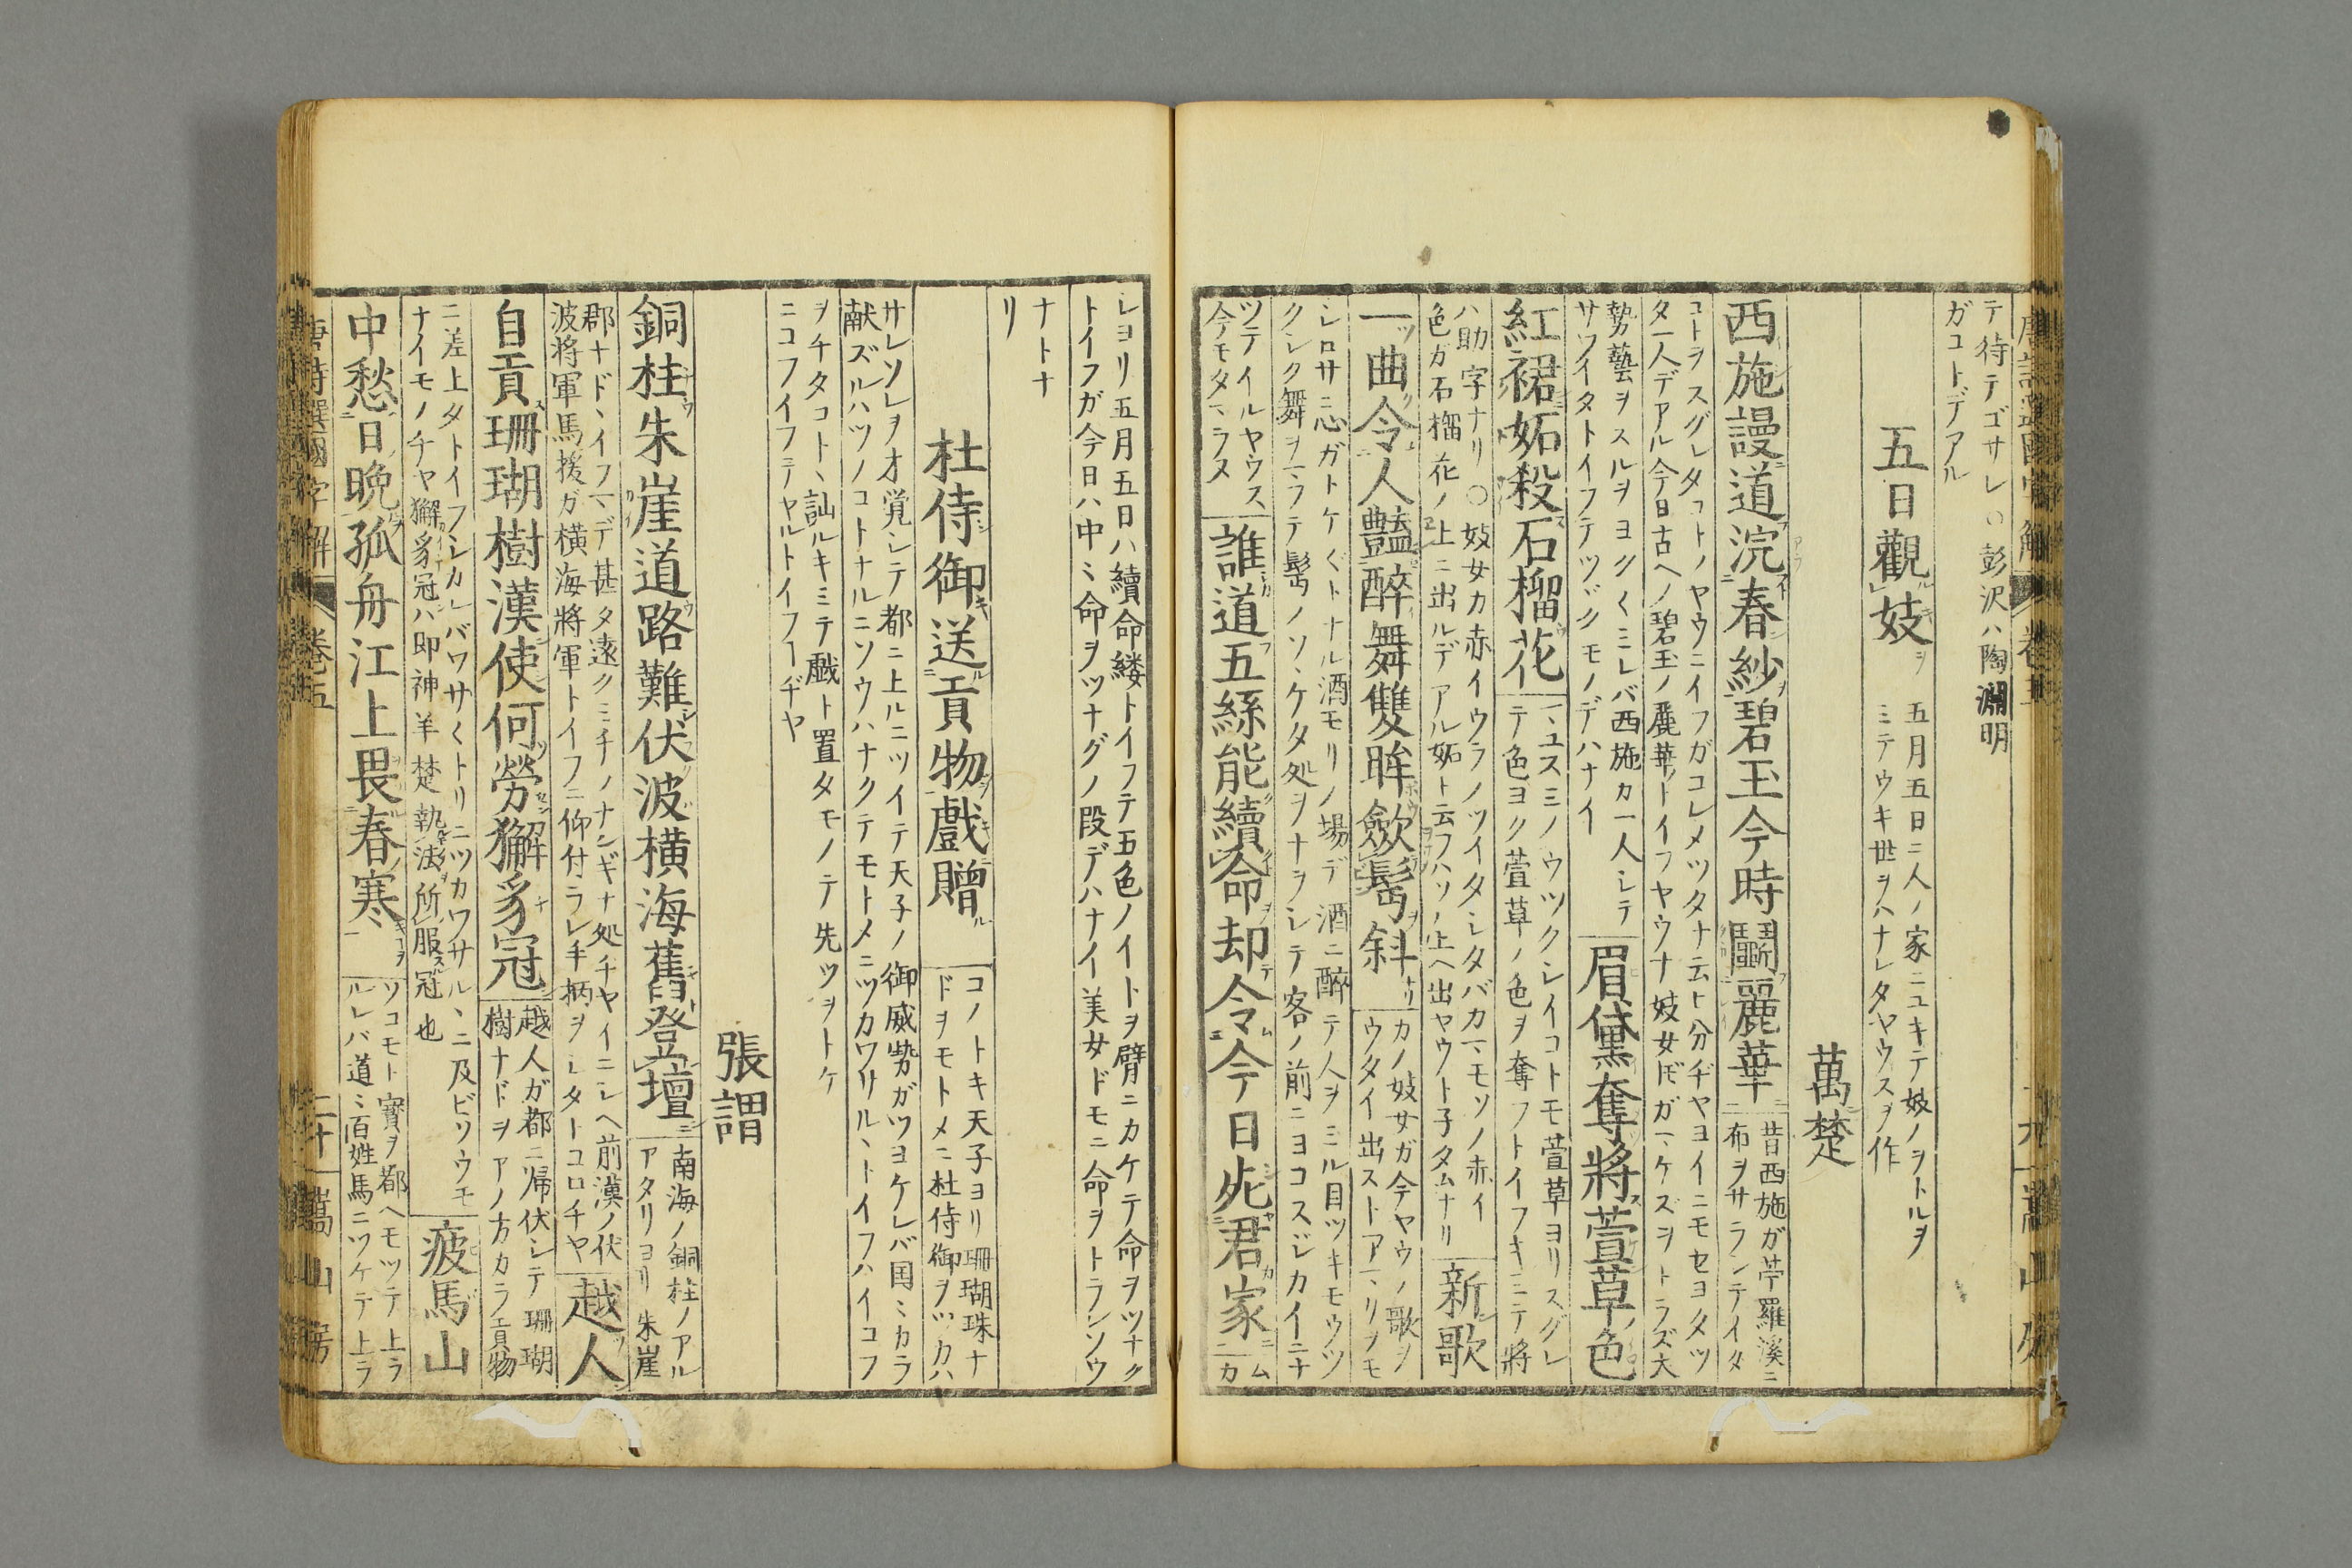 テ待テゴサレ〇彭沢ハ陶淵明
ガコトデアル
五日觀妓
五月五日ニ人ノ家ニユキテ妓ノヲトルヲ
ミテウキ世ヲハナレタヤウスヲ作
萬楚
西施謾道浣春紗碧玉今時鬭麗華
昔西施ガ苧羅溪ニ
布ヲサランテイタ
コトヲスグレタコトノヤウニイフガコレメツタナ云ト分ヂヤヨイニモセヨタツ
タ一人デアル今日古ヘノ碧玉ノ麗華ノトイフヤウナ妓女𪜈ガマケズヲトラズ大
勢藝ヲスルヲヨクくミレバ西施カ一人シテ
サワイタトイフテツヾクモノデハナイ
眉黛奪將萱草色
マユスミノウツクシイコトモ萱草ヨリスグレ
テ色ヨク萱草ノ色ヲ奪フトイフキミニテ將
紅裙妬殺石榴花
ハ助字ナリ〇妓女カ赤イウラノツイタシタバカマモソノ赤イ
色ガ石榴花ノ上ニ出ルデアル妬ト云フハソノ上ヘ出ヤウト子タムナリ
新歌
一曲令人豔醉舞雙眸歛鬢斜
カノ妓女ガ今ヤウノ歌ヲ
ウタイ出ストアマリヲモ
シロサニ心ガトケくトナル酒モリノ場デ酒ニ醉テ人ヲミル目ツキモウツ
クシク舞ヲマフテ鬢ノソヽケタ処ヲナヲシテ客ノ前ニヨコスジカイニナ
ツテイルヤウス
今モタマラヌ
誰道五絲能續命却令今日死君家
ム
カ
レヨリ五月五日ハ續命縷トイフテ五色ノイトヲ臂ニカケテ命ヲツナク
トイフガ今日ハ中ミ命ヲツナグノ段デハナイ美女ドモニ命ヲトラレソウ
ナトナ
リ
杜侍御送貢物戲贈
コノトキ天子ヨリ珊瑚珠ナ
ドヲモトメニ杜侍御ヲツカハ
サレソレヲオ覚シテ都ニ上ルニツイテ天子ノ御威勢ガツヨケレバ国ミカラ
献ズルハツノコトナルニソウハナクテモトメニツカワサルヽトイフハイコフ
ヲチタコトヽ訕ルキミテ戯ト置タモノテ先ツヲトケ
ニコフイフテヤルトイフヿヂヤ
張謂
銅柱朱崖道路難伏波橫海舊登壇
南海ノ銅柱ノアル
アタリヨリ朱崖
郡ナドヽイフマデ甚タ遠クミチノナンギナ処チヤイニシヘ前漢ノ伏
波将軍馬援ガ横海將軍トイフニ仰付ラレ手柄ヲシタトコロチヤ
越人
自貢珊瑚樹漢使何勞獬豸冠
越人ガ都ニ帰伏シテ珊瑚
樹ナドヲアノ方カラ貢物
ニ差上タトイフシカレバワサくトリニツカワサルヽニ及ビソウモ
ナイモノチヤ獬豸冠ハ即神羊楚執法所服冠也
疲馬山
中愁日晩孤舟江上畏春寒
ソコモト寳ヲ都ヘモツテ上ラ
ルレバ道ミ百姓馬ニツケテ上ラ
唐詩選國字解
卷五
二十
嵩山房